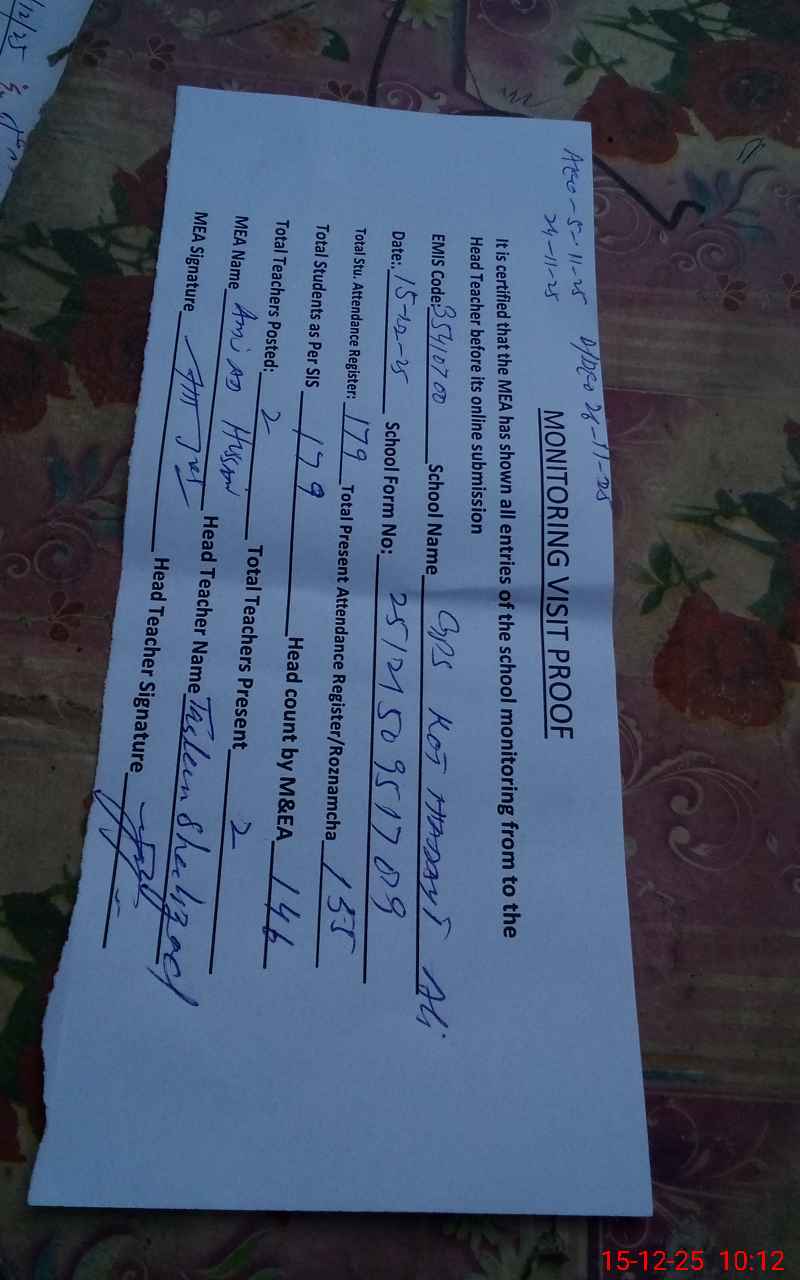 AEO - 5-11-25 D/DEO 28-11-25
24-11-25
MONITORING VISIT PROOF
It is certified that the MEA has shown all entries of the school monitoring from to the
Head Teacher before its online submission
EMIS Code: 35410700 School Name GPS KOT HASSAN Ali
Date: 15-12-25 School Form No: 25121509517089
Total Stu. Attendance Register: 179 Total Present Attendance Register/Roznamcha 155
Total Students as Per SIS 179 Head count by M&EA 146
Total Teachers Posted: 2 Total Teachers Present 2
MEA Name Amjad Husain Head Teacher Name Tasleem Shehzad
MEA Signature Head Teacher Signature
12/25
15-12-25 10:12